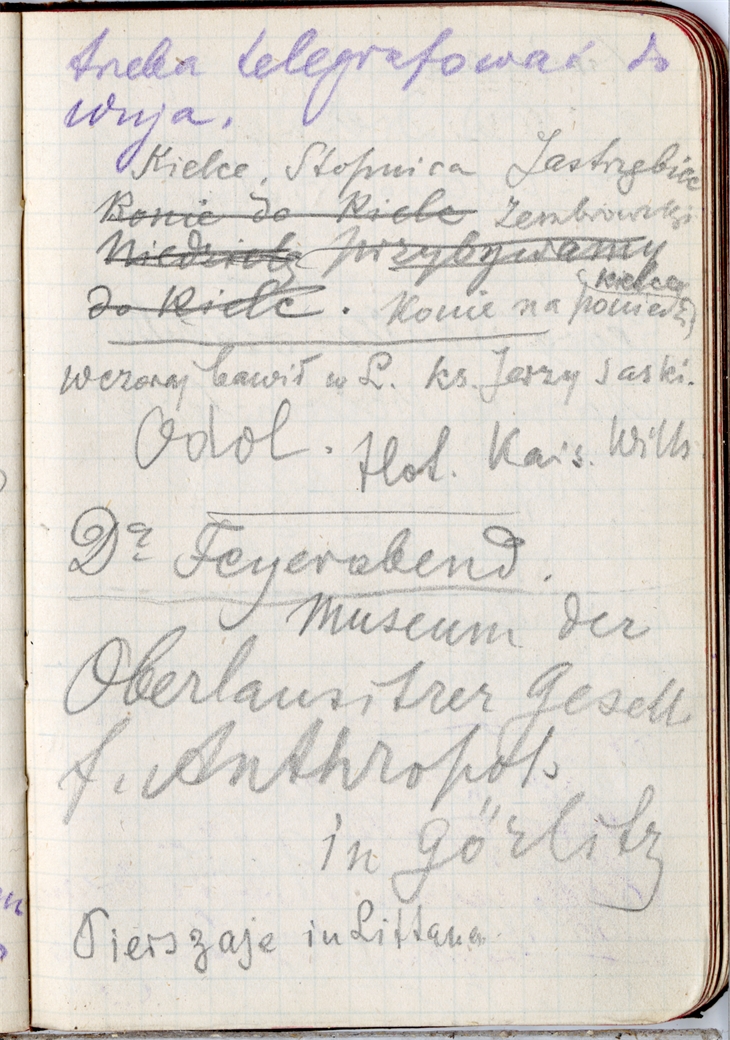 trzeba telegrafować do
wuja.
Kielce, Stopnica Jastrzębiec
Konie do Kielc Zembrowski
Niedzielę przybywamy
do Kielc. Konie na poniedz
Kielce
wczoraj bawił w L. ks. Jerzy Saski.
Odol. Hot. Kais. Wilh
Dr Feyerabend.
Museum der
Oberlausitzer Gesell
f. Anthropol
in Görlitz
Pierszaje in Littaua